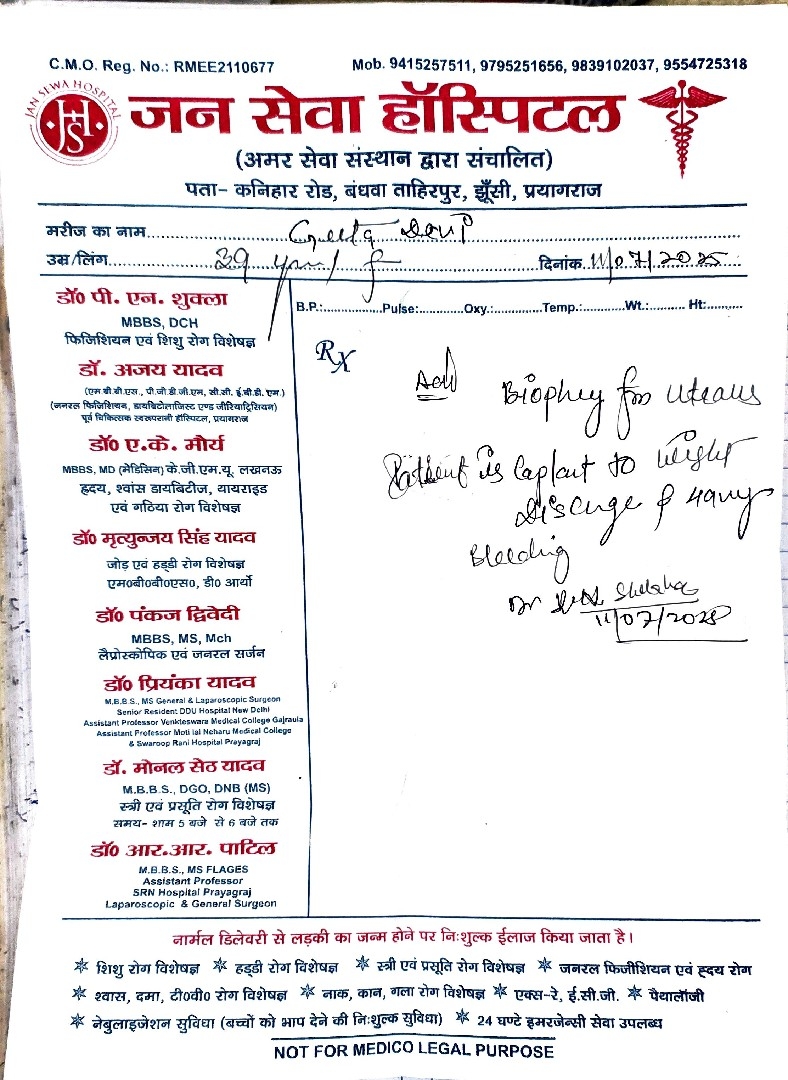 C.M.O. Reg. No.: RMEE2110677 Mob. 9415257511, 9795251656, 9839102037, 9554725318
JAN SEWA HOSPITAL
JHS
जन सेवा हॉस्पिटल
(अमर सेवा संस्थान द्वारा संचालित)
पता- कनिहार रोड, बंधवा ताहिरपुर, झूँसी, प्रयागराज
मरीज का नाम Geeta Devi
उम्र/लिंग 39 year/ f दिनांक 11/07/2025
डॉ0 पी. एन. शुक्ला
MBBS, DCH
फिजिशियन एवं शिशु रोग विशेषज्ञ
डॉ. अजय यादव
(एम बी.बी.एस., पी.जी.डी.जी.एम, सी.सी. ई.बी.डी. एम.)
(जनरल फिजिशियन, डायबिटोलाजिस्ट एण्ड जीरियाट्रिसियन)
पूर्व चिकित्सक स्वरूपरानी हॉस्पिटल, प्रयागराज
डॉ0 ए.के. मौर्य
MBBS, MD (मेडिसिन) के.जी.एम.यू. लखनऊ
ह्रदय, श्वांस डायबिटीज, थायराइड
एवं गठिया रोग विशेषज्ञ
डॉ0 मृत्युन्जय सिंह यादव
जोड़ एवं हड्डी रोग विशेषज्ञ
एम0बी0बी0एस0, डी0 आर्थो
डॉ0 पंकज द्विवेदी
MBBS, MS, Mch
लैप्रोस्कोपिक एवं जनरल सर्जन
डॉ0 प्रियंका यादव
M.B.B.S., MS General & Laparoscopic Surgeon
Senior Resident DDU Hospital New Delhi
Assistant Professor Venkteswara Medical College Gajraula
Assistant Professor Moti lal Neharu Medical College
& Swaroop Rani Hospital Prayagraj
डॉ. मोनल सेठ यादव
M.B.B.S., DGO, DNB (MS)
स्त्री एवं प्रसूति रोग विशेषज्ञ
समय- शाम 5 बजे से 6 बजे तक
डॉ0 आर.आर. पाटिल
M.B.B.S., MS FLAGES
Assistant Professor
SRN Hospital Prayagraj
Laparoscopic & General Surgeon
B.P.: Pulse: Oxy.: Temp.: Wt.: Ht:
Rx
Adv Biophey for uteraus
Patient is Caplant to Weight
Discurge & Havy
Bleeding
Dr
11/07/2025
नार्मल डिलेवरी से लड़की का जन्म होने पर निःशुल्क ईलाज किया जाता है।
शिशु रोग विशेषज्ञ हड्डी रोग विशेषज्ञ स्त्री एवं प्रसूति रोग विशेषज्ञ जनरल फिजीशियन एवं ह्दय रोग
श्वास, दमा, टी०वी० रोग विशेषज्ञ नाक, कान, गला रोग विशेषज्ञ एक्स-रे, ई.सी.जी. पैथालॉजी
नेबुलाइजेशन सुविधा (बच्चों को भाप देने की निःशुल्क सुविधा) 24 घण्टे इमरजेन्सी सेवा उपलब्ध
NOT FOR MEDICO LEGAL PURPOSE